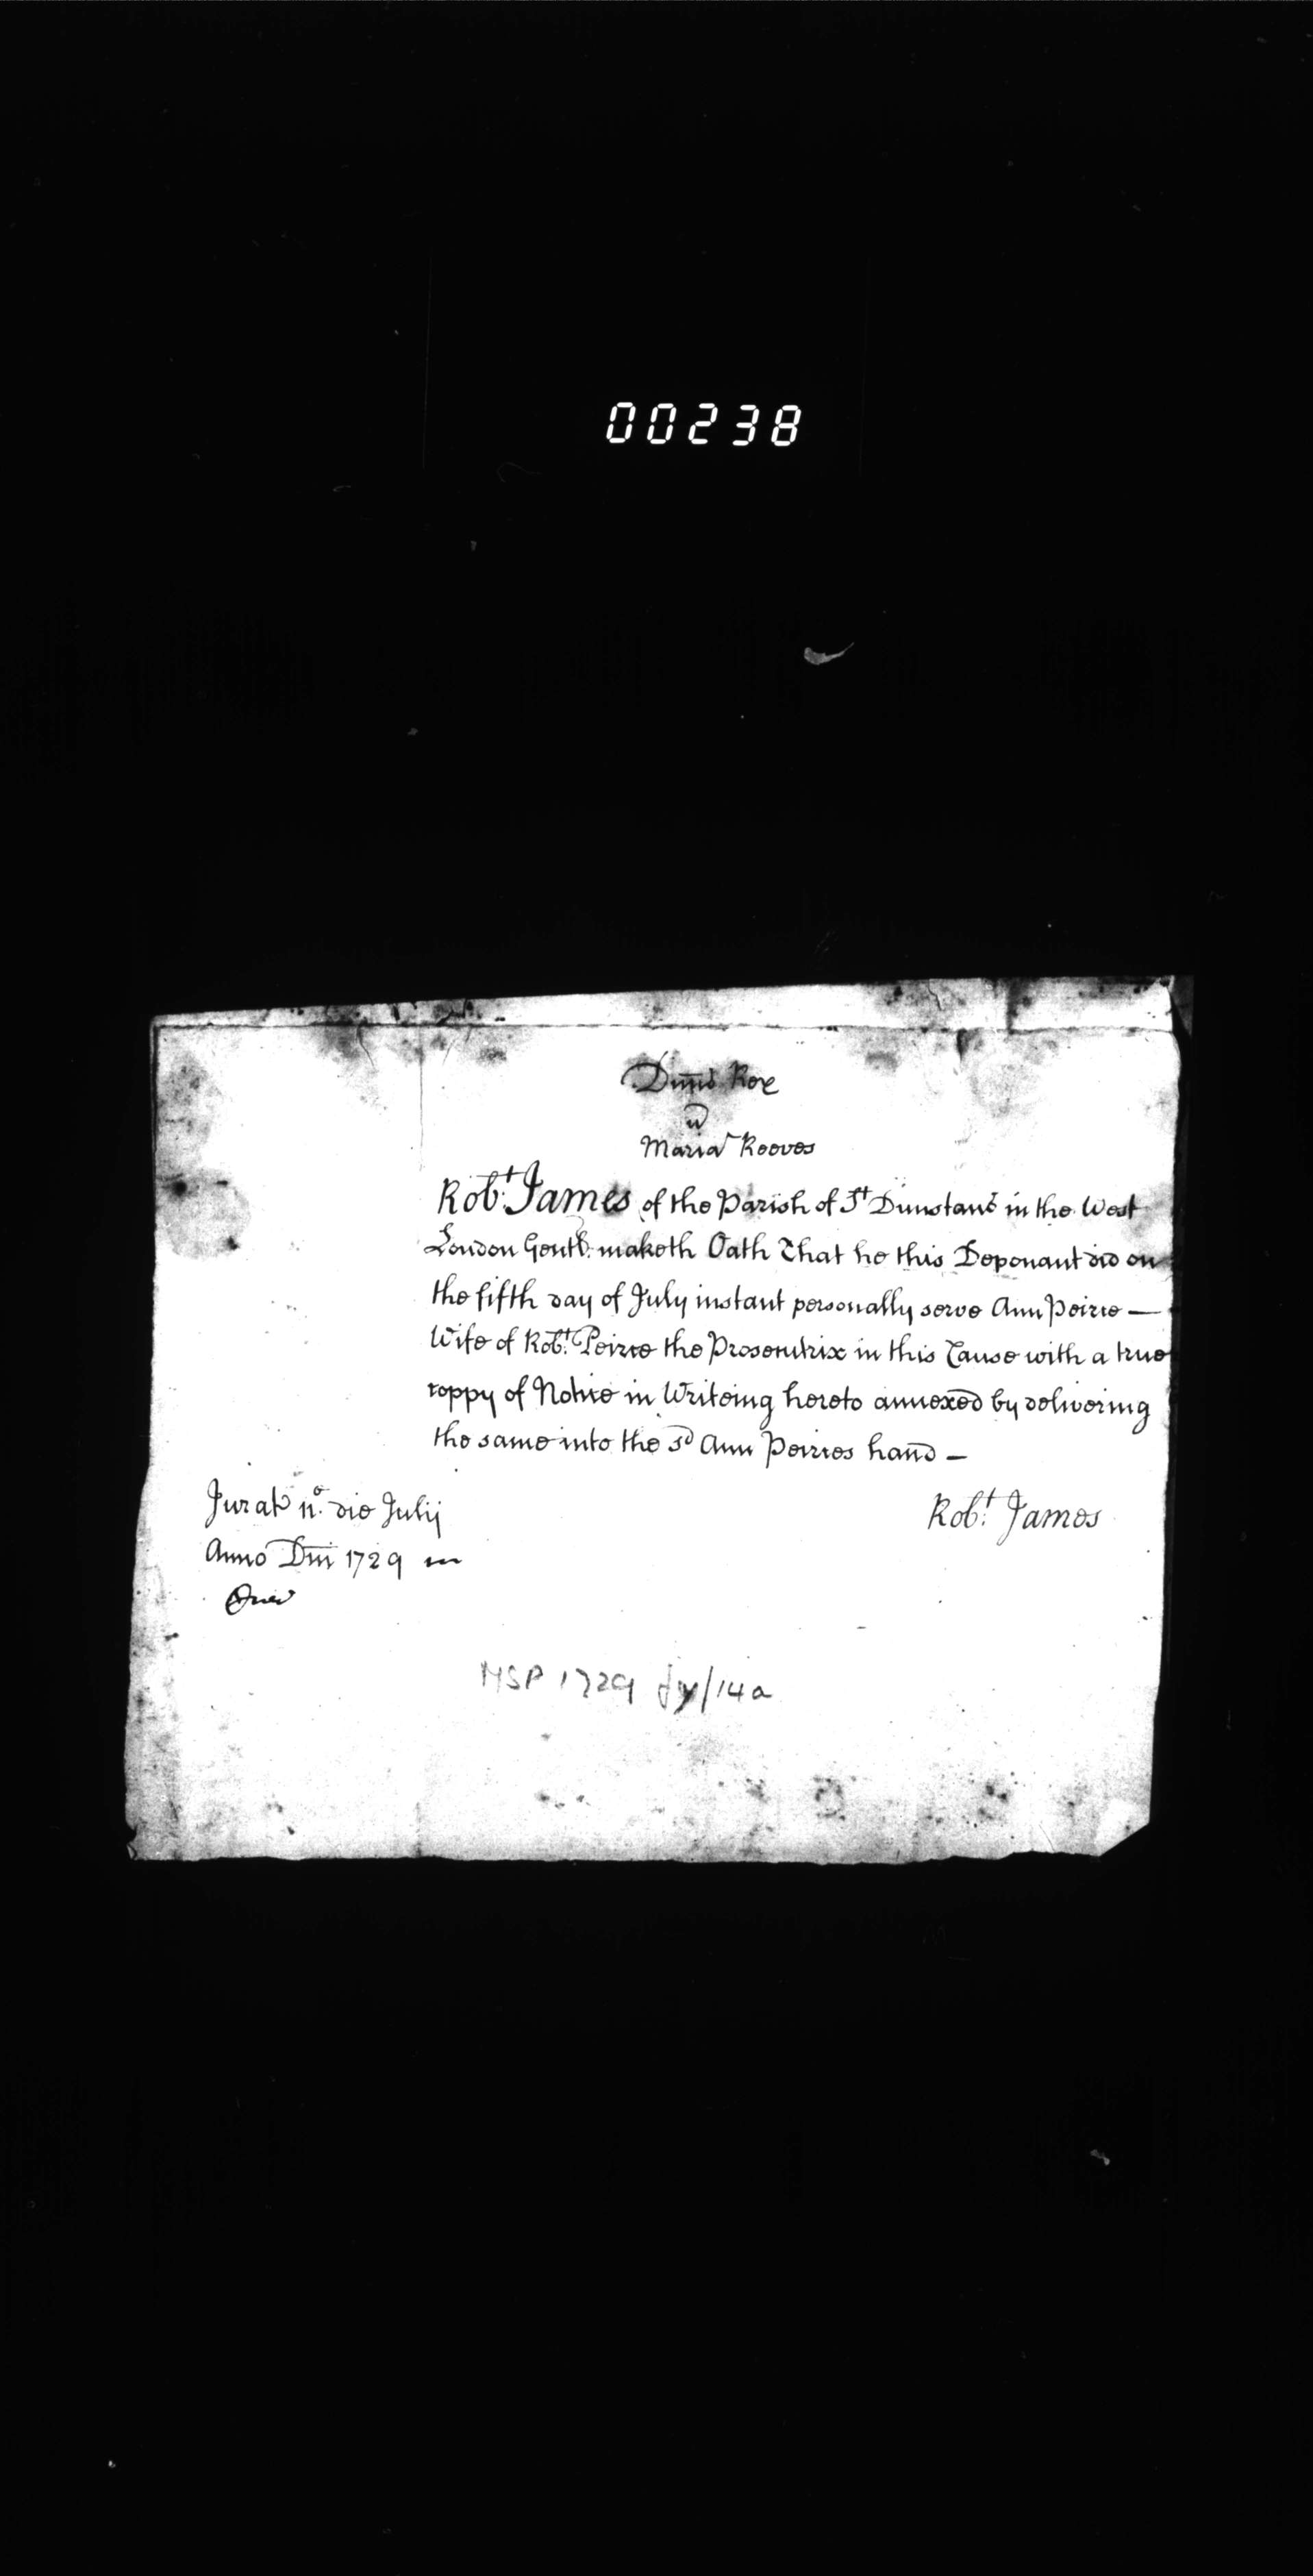 00238
Dmus Rex
v
Maria Reeves
Robt. James of the Parish of St Dunstans in the West
London Gentl. maketh Oath That he this Deponant did on
the fifth day of July instant personally serve Ann Peirce —
Wife of Robt. Peirce the Prosecutrix in this Cause with a true
coppy of Notice in Writeing hereto annexed by delivering
the same into the sd Ann Peirces hand —
Jurat 11o. die Julij
Robt. James
Anno Dni 1729 in
Cur
MSP 1729 Jy/14a